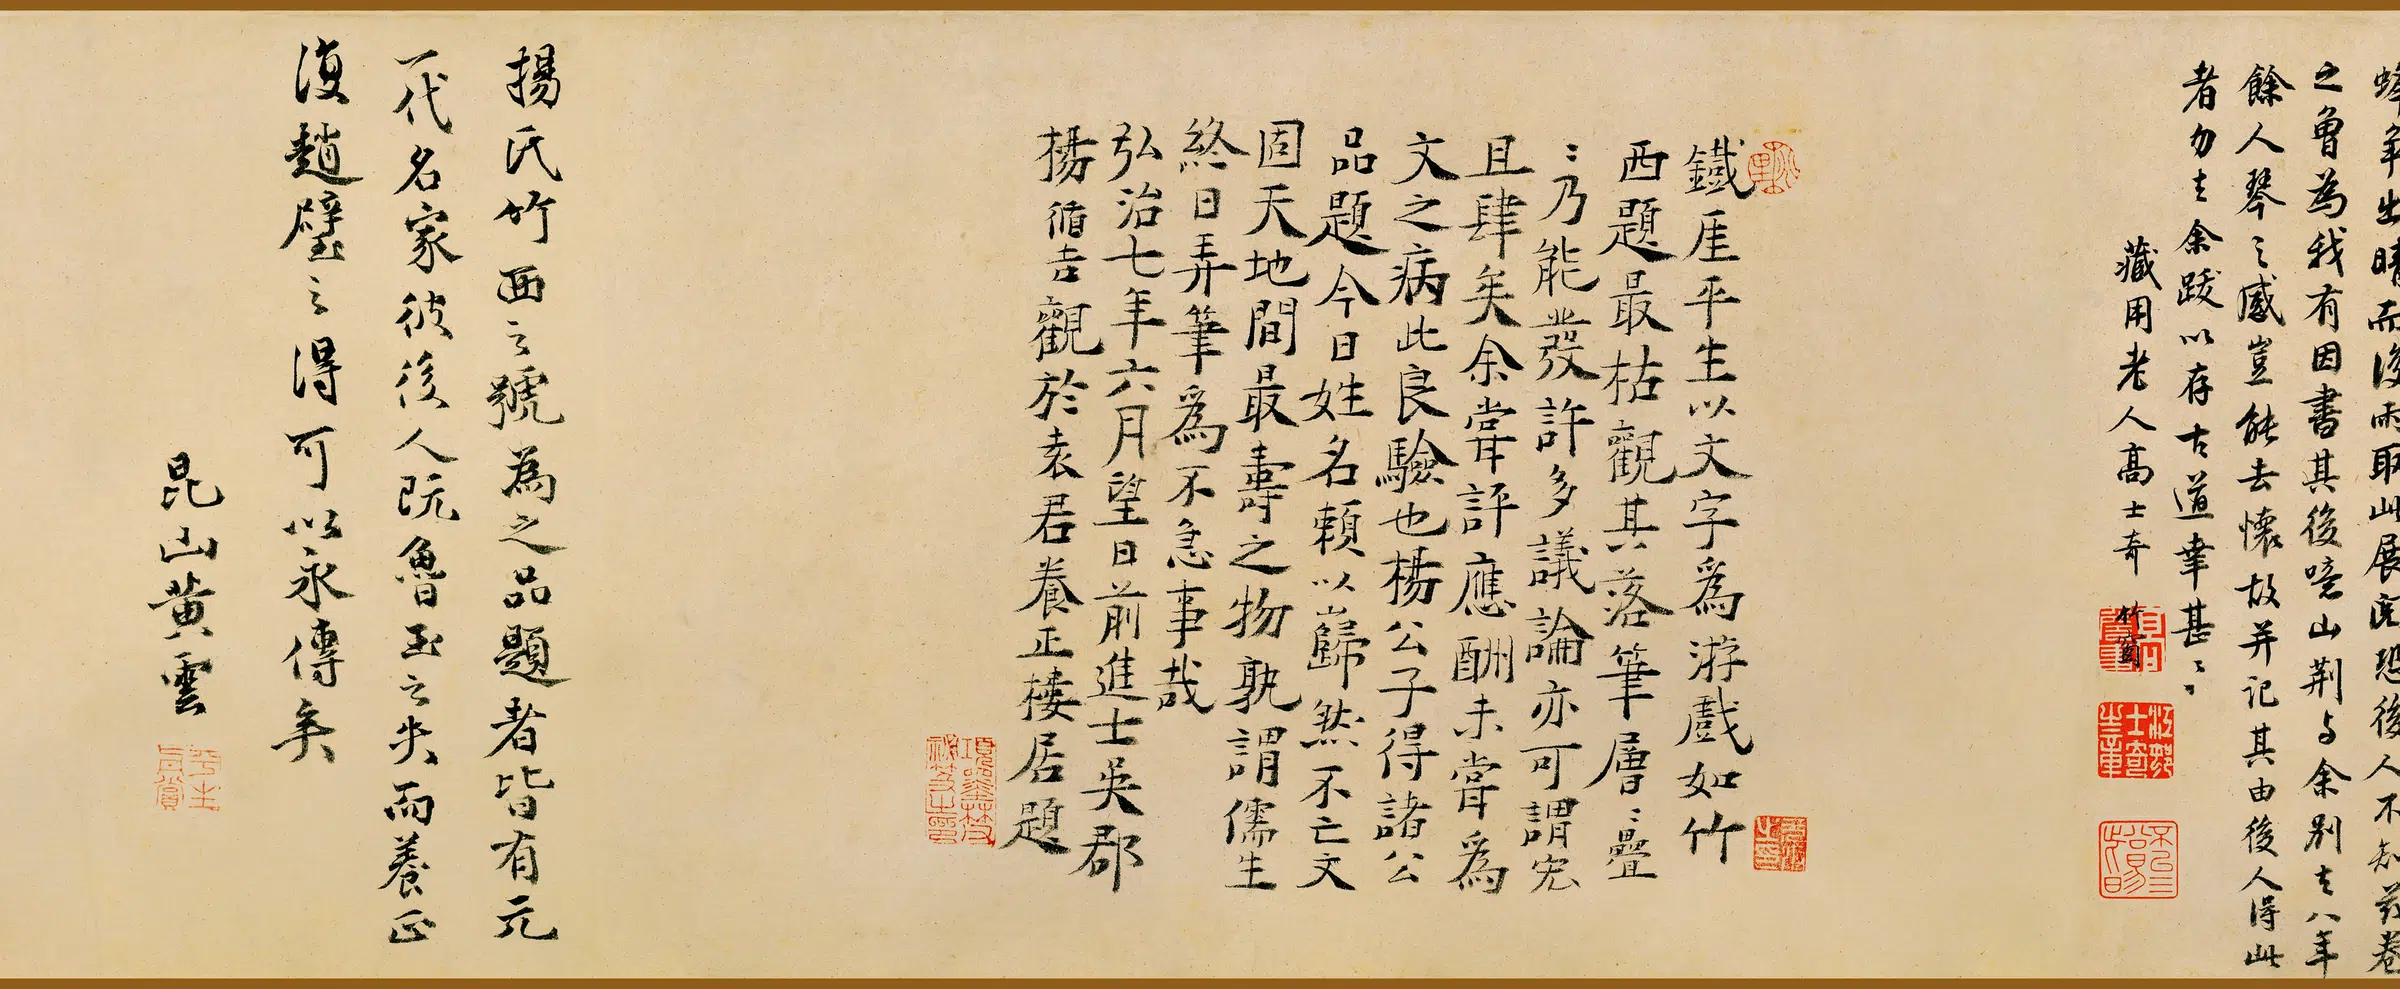 蜂争出晴而後雨取此展玩恐後人不知茲卷
之魯為我有因書其後嗟山荆与余别去八年
餘人琴之感豈能去懷故并记其由後人得此
者勿去余跋以存古道幸甚〻〻
藏用老人高士奇 竹窗
鐵厓平生以文字為游戲如竹
西題最枯觀其落筆層〻疊
〻乃能發許多議論亦可謂宏
且肆矣余嘗評應酬未嘗為
文之病此良驗也楊公子得諸公
品題今日姓名賴以巋然不亡文
固天地間最壽之物孰謂儒生
終日弄筆為不急事哉
弘治七年六月望日前進士吳郡
楊循吉觀於袁君養正樓居題
楊氏竹西之號為之品題者皆有元
一代名家彼後人既魯玉之失而養正
復趙璧之得可以永傳矣
昆山黄雲